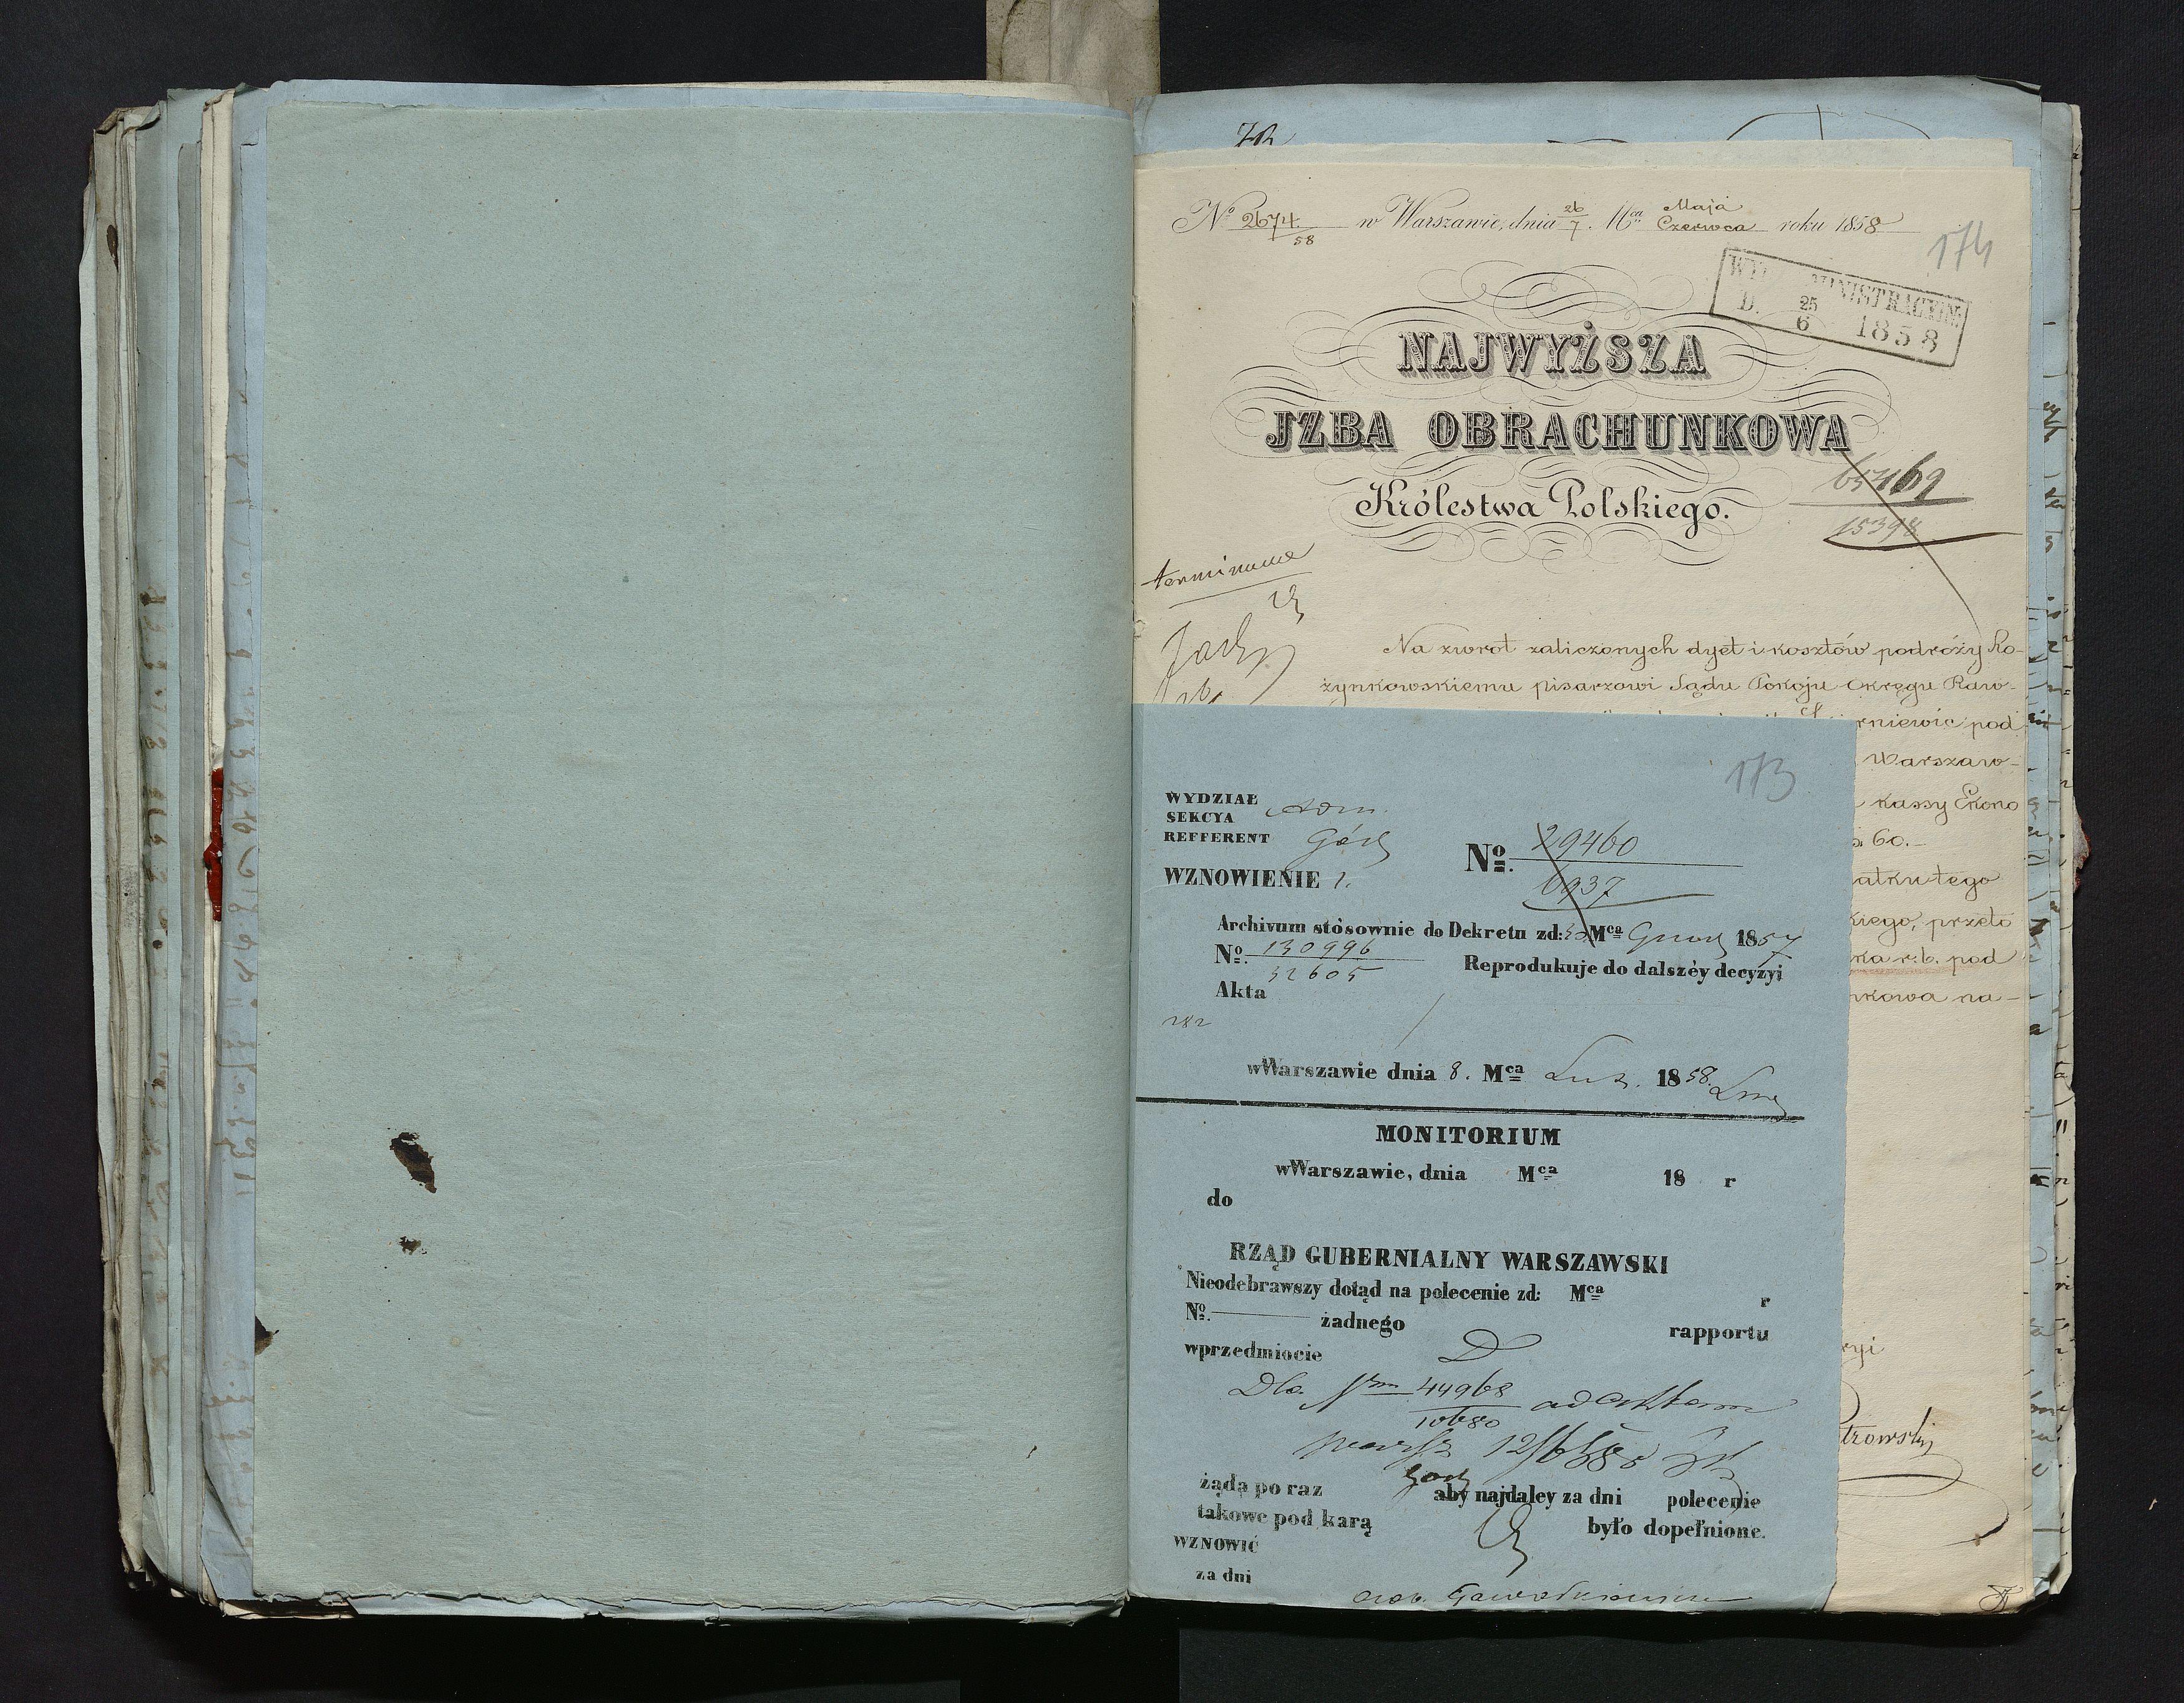 No 2674/58 w Warszawie, dnia 26/7 Mca Maja/Czerwca roku 1858
174
ADMINISTRACYJN.
D. 25/6 1858
NAJWYŻSZA
JZBA OBRACHUNKOWA
Królestwa Polskiego.
65469
15398
terminowe
Na zwrot zaliczonych dyet i kosztów podróży Ro-
żynkowskiemu pisarzowi Sądu Pokoju Okręgu Raw-
rniewic pod
Warszaw-
kassy Ekono
60.-
atku tego
kiego, przeto
ka r.b. pod
nkowa na-
yi
trowski
173
WYDZIAŁ Adm.
SEKCYA
REFFERENT Górs
WZNOWIENIE 1.
No. 29460
6937
Archivum stósownie do Dekretu zd: Mca Grud 1857
No. 130996
32605
Reprodukuje do dalszéy decyzyi
Akta
282
wWarszawie dnia 8. Mca Lut. 1858.
MONITORIUM
wWarszawie, dnia Mca 18 r
do
RZĄD GUBERNIALNY WARSZAWSKI
Nieodebrawszy dotąd na polecenie zd: Mca r
No. żadnego rapportu
wprzedmiocie
D
Dla 44968 ad
10680
12/6 58
żąda po raz aby najdaley za dni polecenie
takowe pod karą było dopełnione.
WZNOWIĆ
za dni